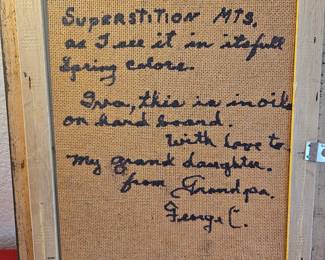 SUPERSTITION MTS.
as I see it in its full
Spring colors.
Iva, this is in oils
on hard board.
With love to
my grand daughter.
from Grandpa.
George C.